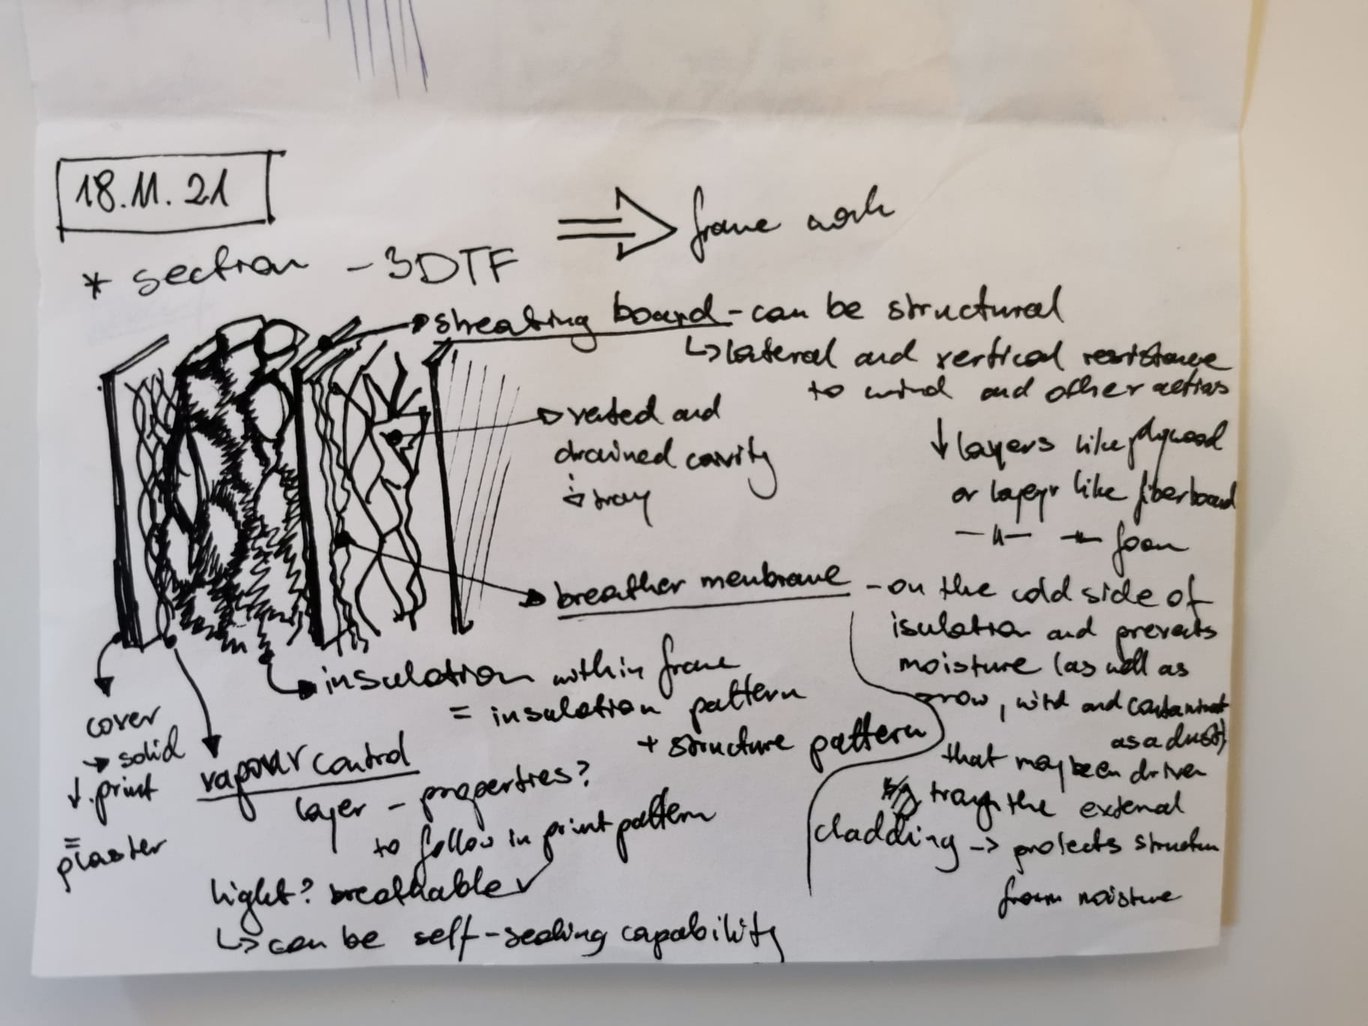 18.11.21
* section - 3DTF ⇒ frame work
sheating board - can be structural
↳ lateral and vertical resistance
to wind and other actions
↓ layers like plywood
or layer like fiberboard
foam
vented and
drained cavity
tray
breather membrane - on the cold side of
isulation and prevents
moisture (as well as
snow, wind and contaminat
as a dust)
that may been driven
the external
cladding → protects structure
from moisture
insulation within frame
= insulation pattern
+ structure pattern
cover
→ solid
↓ print
=
plaster
vapour control
layer - properties?
to follow in print pattern
light? breathable ✓
↳ can be self-sealing capability